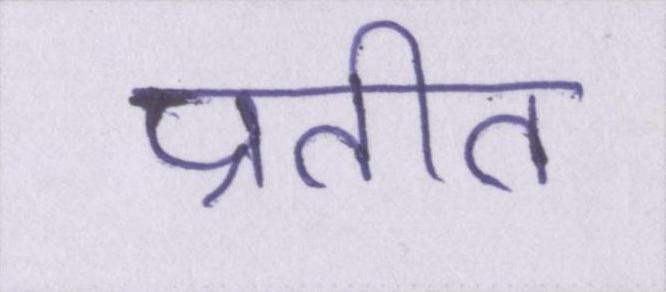 प्रतीत